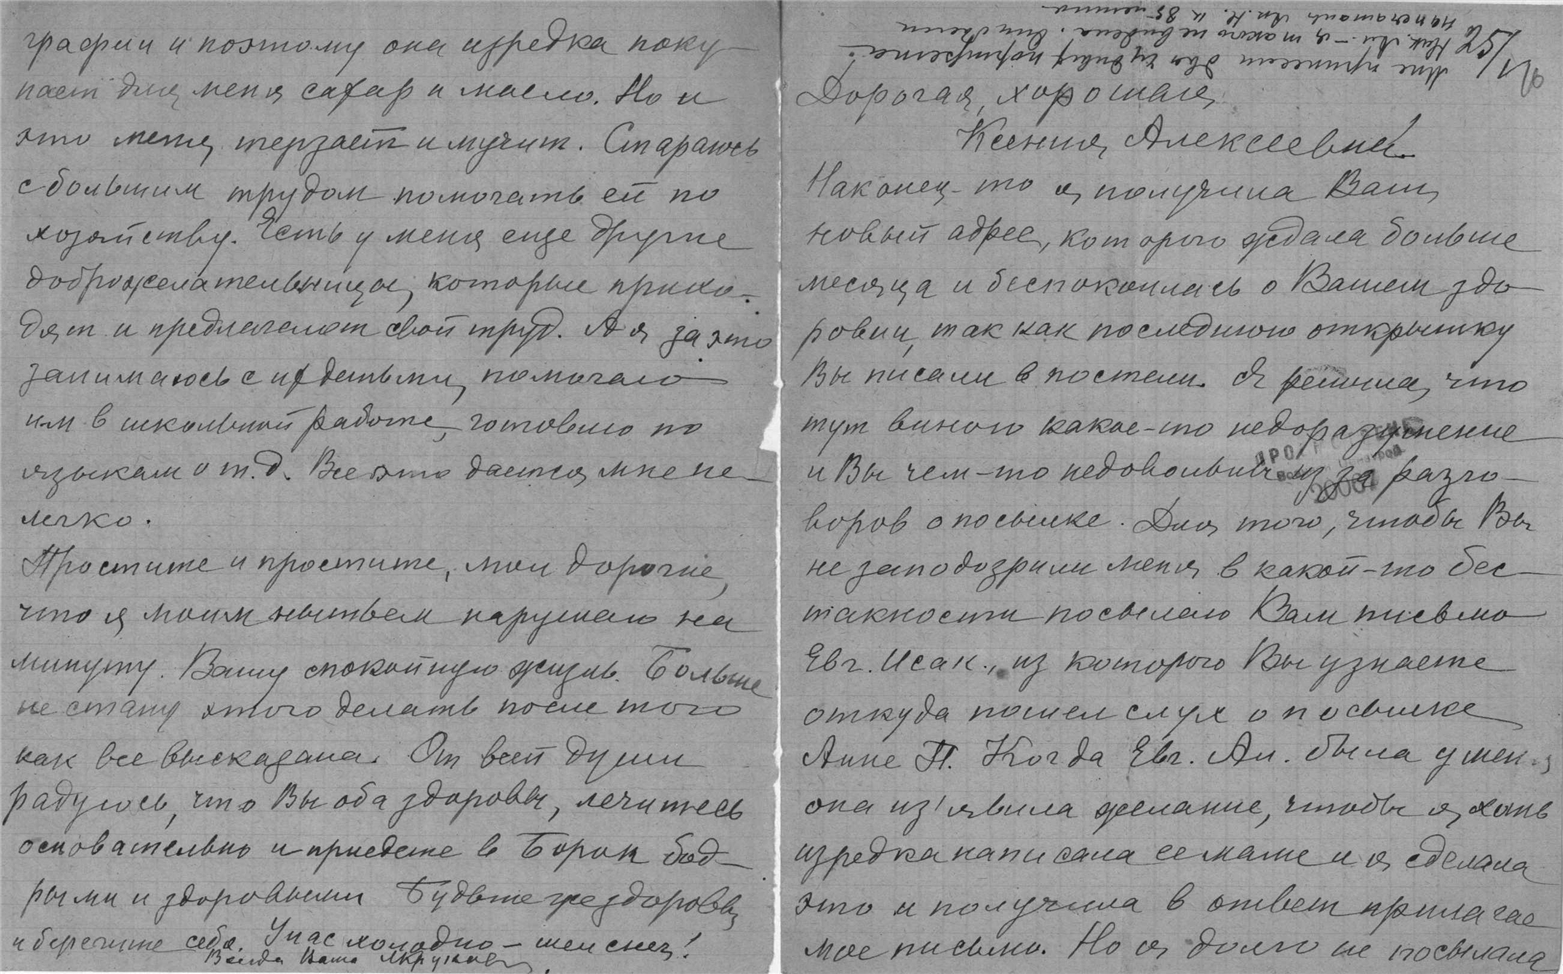 Дорогая, хорошая
Ксения Алексеевна!
Наконец-то я получила Ваш
новый адрес, которого ждала больше
месяца и беспокоилась о Вашем здо-
ровии, так как последнюю открытку
Вы писали в постели. Я решила, что
тут виною какое-то недоразумение
и Вы чем-то недовольны из за разго-
воров о посылке. Для того, чтобы Вы
не заподозрили меня в какой-то бес-
тактности посылаю Вам письмо
Евг. Исак., из которого Вы узнаете
откуда пошел слух о посылке
Анне П. Когда Евг. Ан. была у меня
она из'явила желание, чтобы я хоть
изредка написала ее маме и я сделала
это и получила в ответ прилагае
мое письмо. Но я долго не посылала
графии и поэтому она изредка поку-
пает для меня сахар и масло. Но и
это меня терзает и мучит. Стараюсь
с большим трудом помогать ей по
хозяйству. Есть у меня еще другие
доброжелательницы, которые прихо-
дят и предлагают свой труд. А я за это
занимаюсь с их детьми, помогаю
им в школьной работе, готовлю по
языкам и т.д. Все это дается мне не-
легко.
Простите и простите, мои дорогие,
что я моим нытьем нарушаю на
минуту Вашу спокойную жизнь. Больше
не стану этого делать после того
как все высказала. От всей души
радуюсь, что Вы оба здоровы, лечитесь
основательно и приедете в Борок бод-
рыми и здоровыми Будьте же здоровы
и берегите себя. У нас холодно - шел снег!
Всегда Ваша